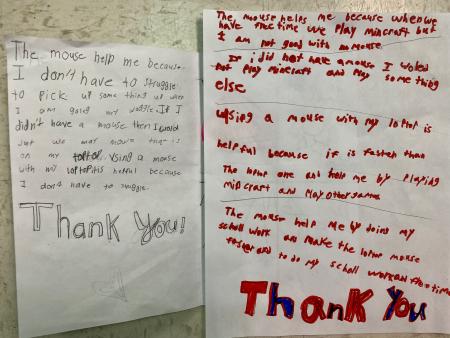 The mouse help me because
I don't have to struggle
to pick up some thing up when
I am going my woggle. If I
didn't have a mouse then I would
Just use mouse that is
on my toptop. using a mouse
with my loptop is helful because
I don't have to suggle.
Thank You!
The mouse helps me because when we
have free time we play mincraft but
I am not good with no mouse.
If i did not have a mouse I woled
not play minecraft and play some thing
else
using a mouse with my loptop is
helpful because it is fester than
The loptop one and help me by playing
minecraft and play other games
The mouse help me by doing my
scholl work an make the loptop mouse
faster and to do my scholl work and free time
Thank You